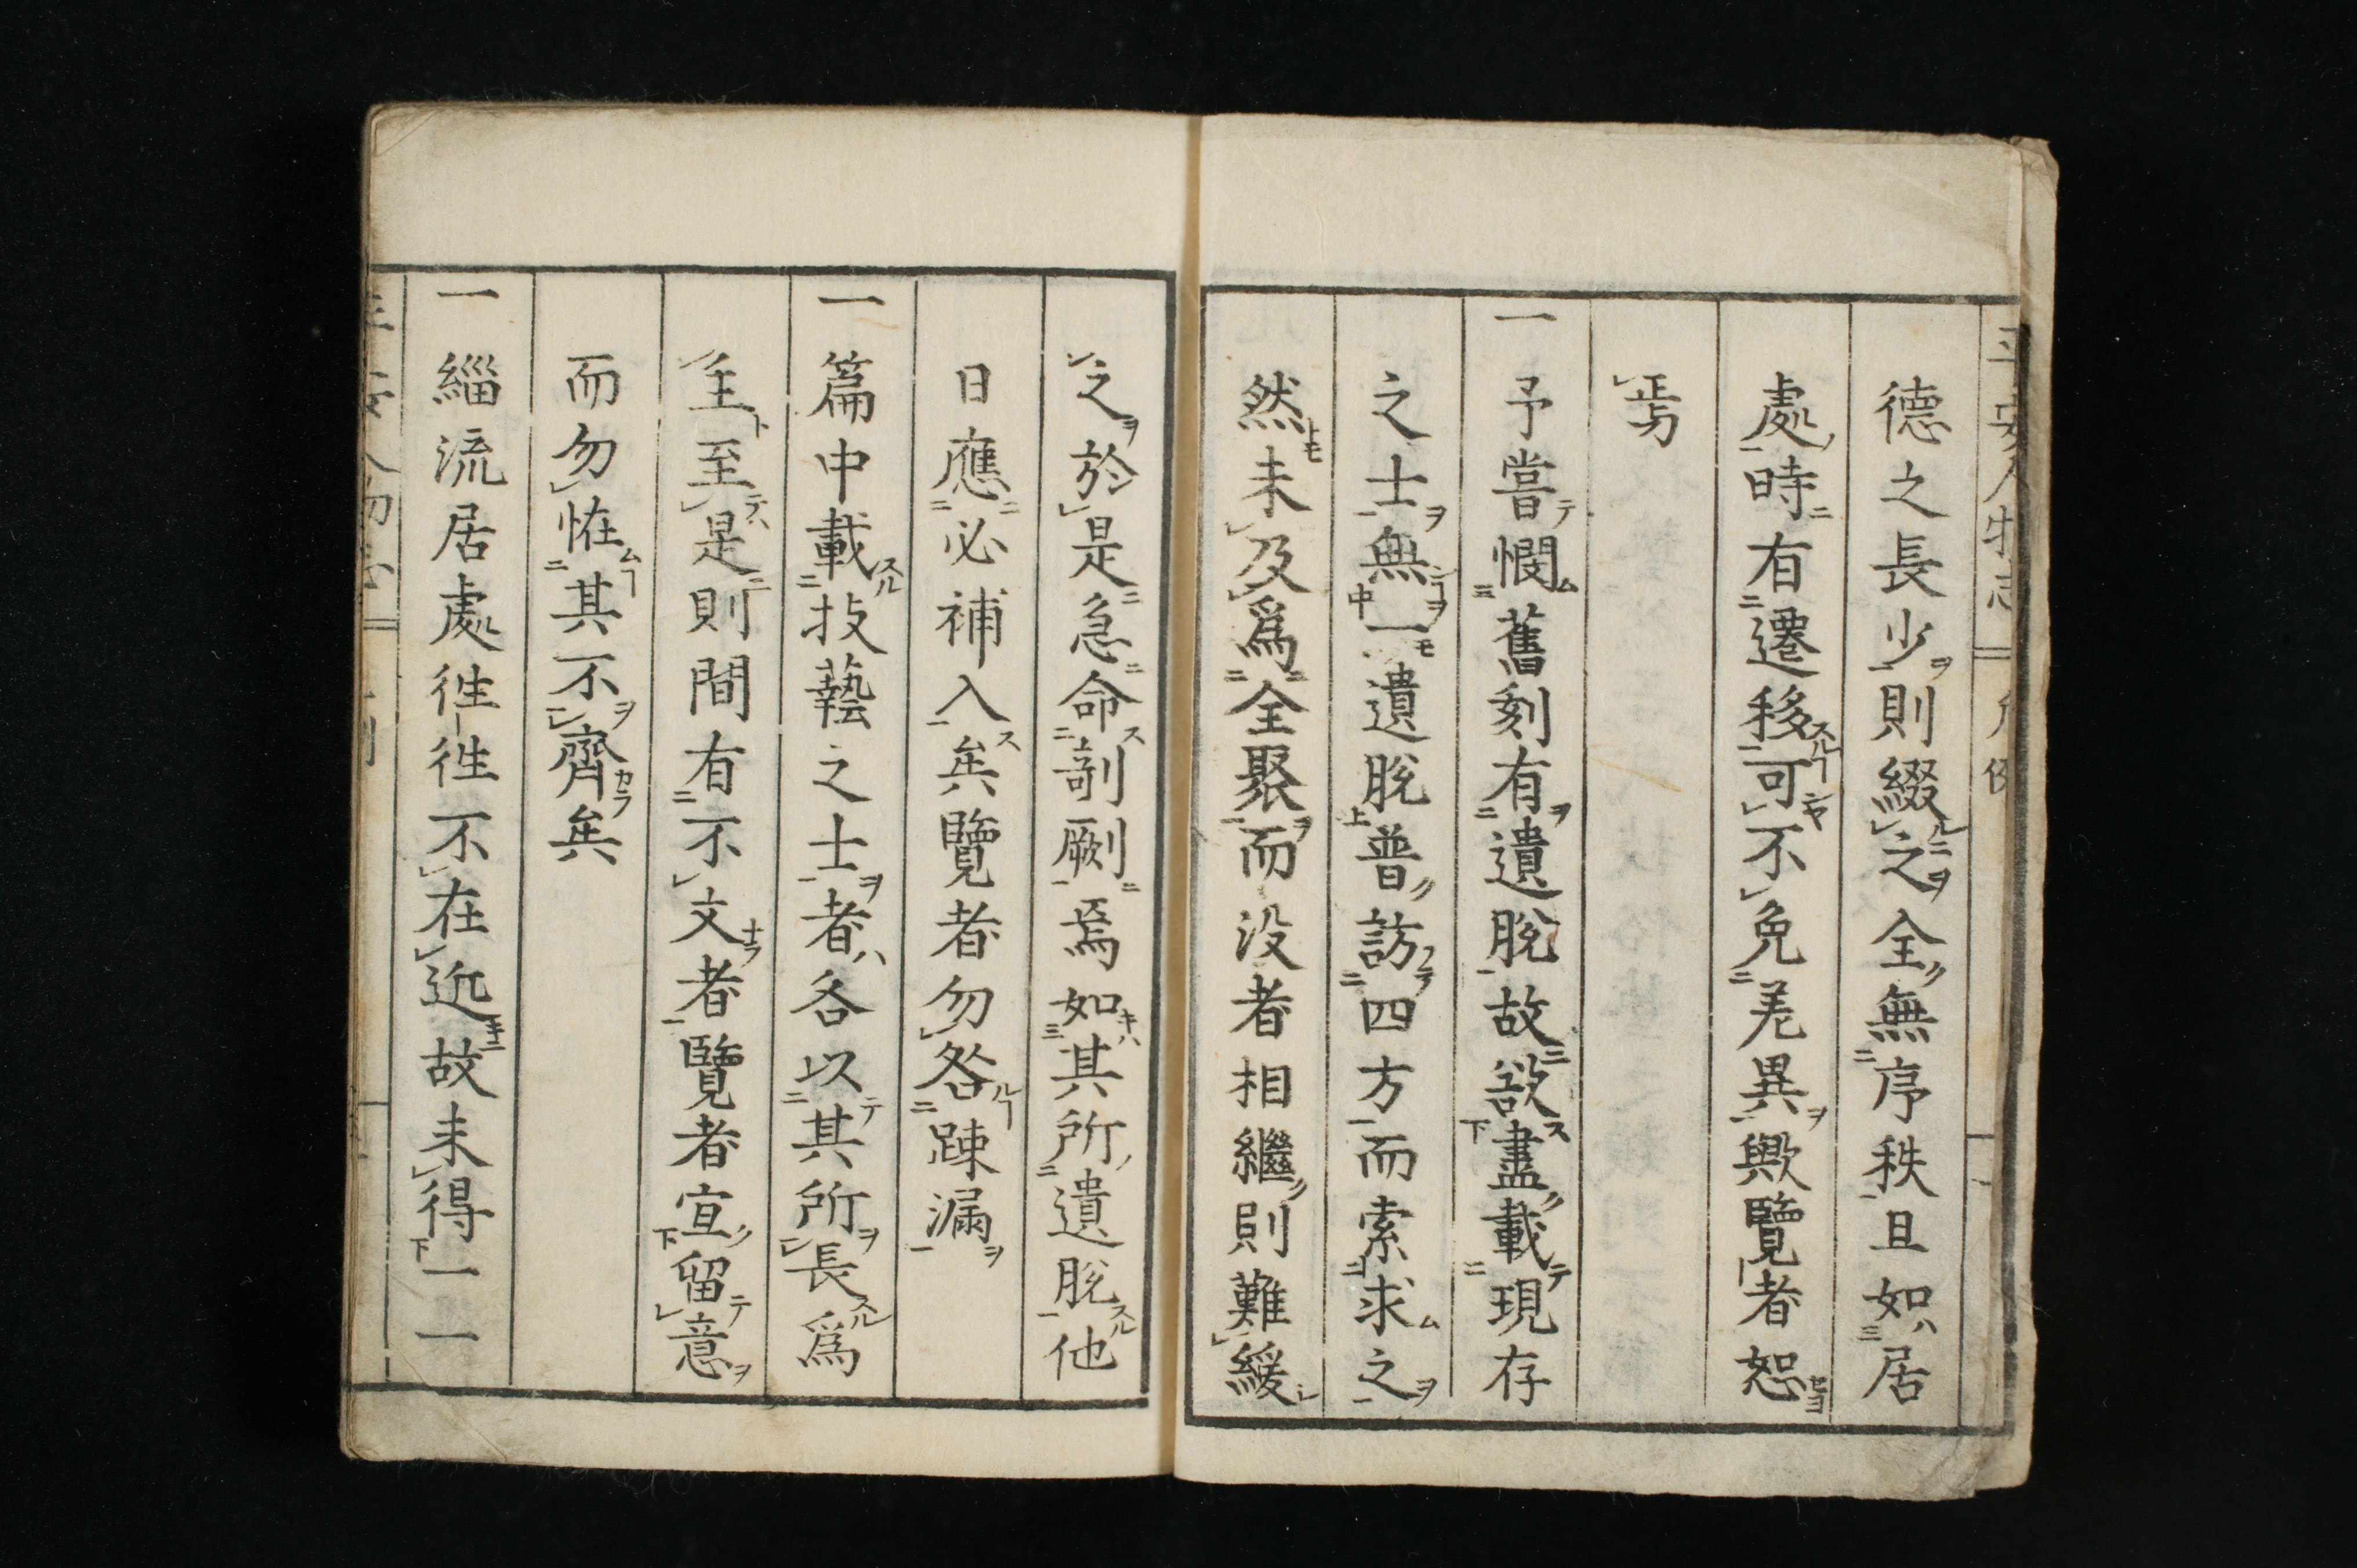 德之長少則綴之全無序秩且如居
處時有遷移可不免差異歟覽者恕
焉
一予嘗憫舊刻有遺脫故欲盡載現存
之士無一遺脫普訪四方而索求之
然未及爲全聚而没者相繼則難緩
之於是急命剞劂焉如其所遺脫他
日應必補入矣覽者勿咎踈漏
一篇中載技藝之士者各以其所長爲
主至是則間有不文者覽者宜留意
而勿恠其不齊矣
一緇流居處徃徃不在近故未得一一